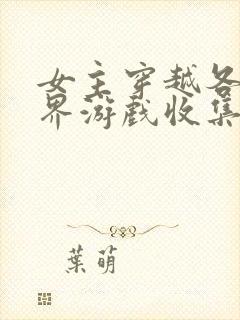 女主穿越各
界游戏收集
葉萌